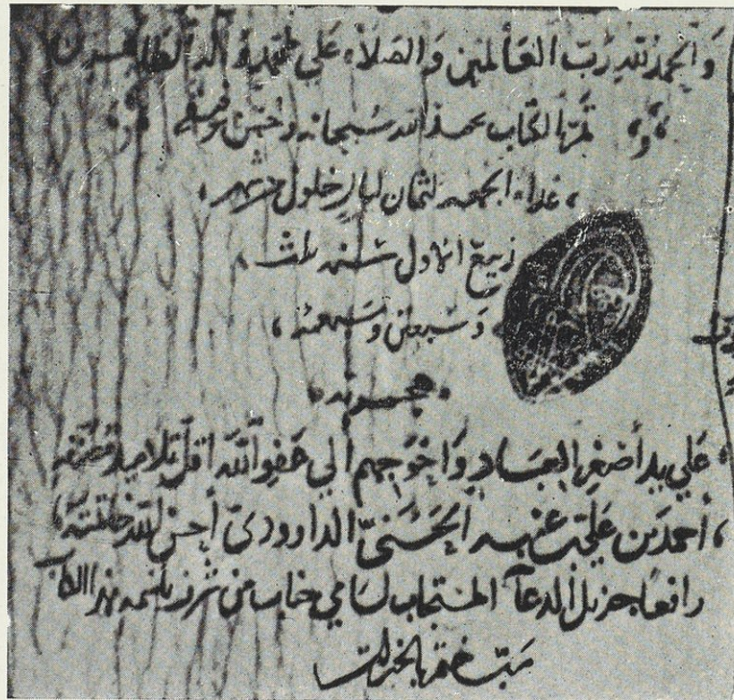 والحمد لله رب العالمين والصلاة على محمد وآله الطاهرين
تم الكتاب بحمد الله سبحانه وحسن توفيقه
غداة الجمعه لثمان ليال خلون من شهر
ربيع الاول سنه ثلث
وسبعين وسبعمئه
هجريه
على يد أصغر العباد وأحوجهم الى عفو الله اقل تلاميذ مصنفه
أحمد بن علي بن عنبه الحسني الداودي أحسن الله خاتمته
رافعا جزيل الدعآء المستجاب لسامي جناب من شرف